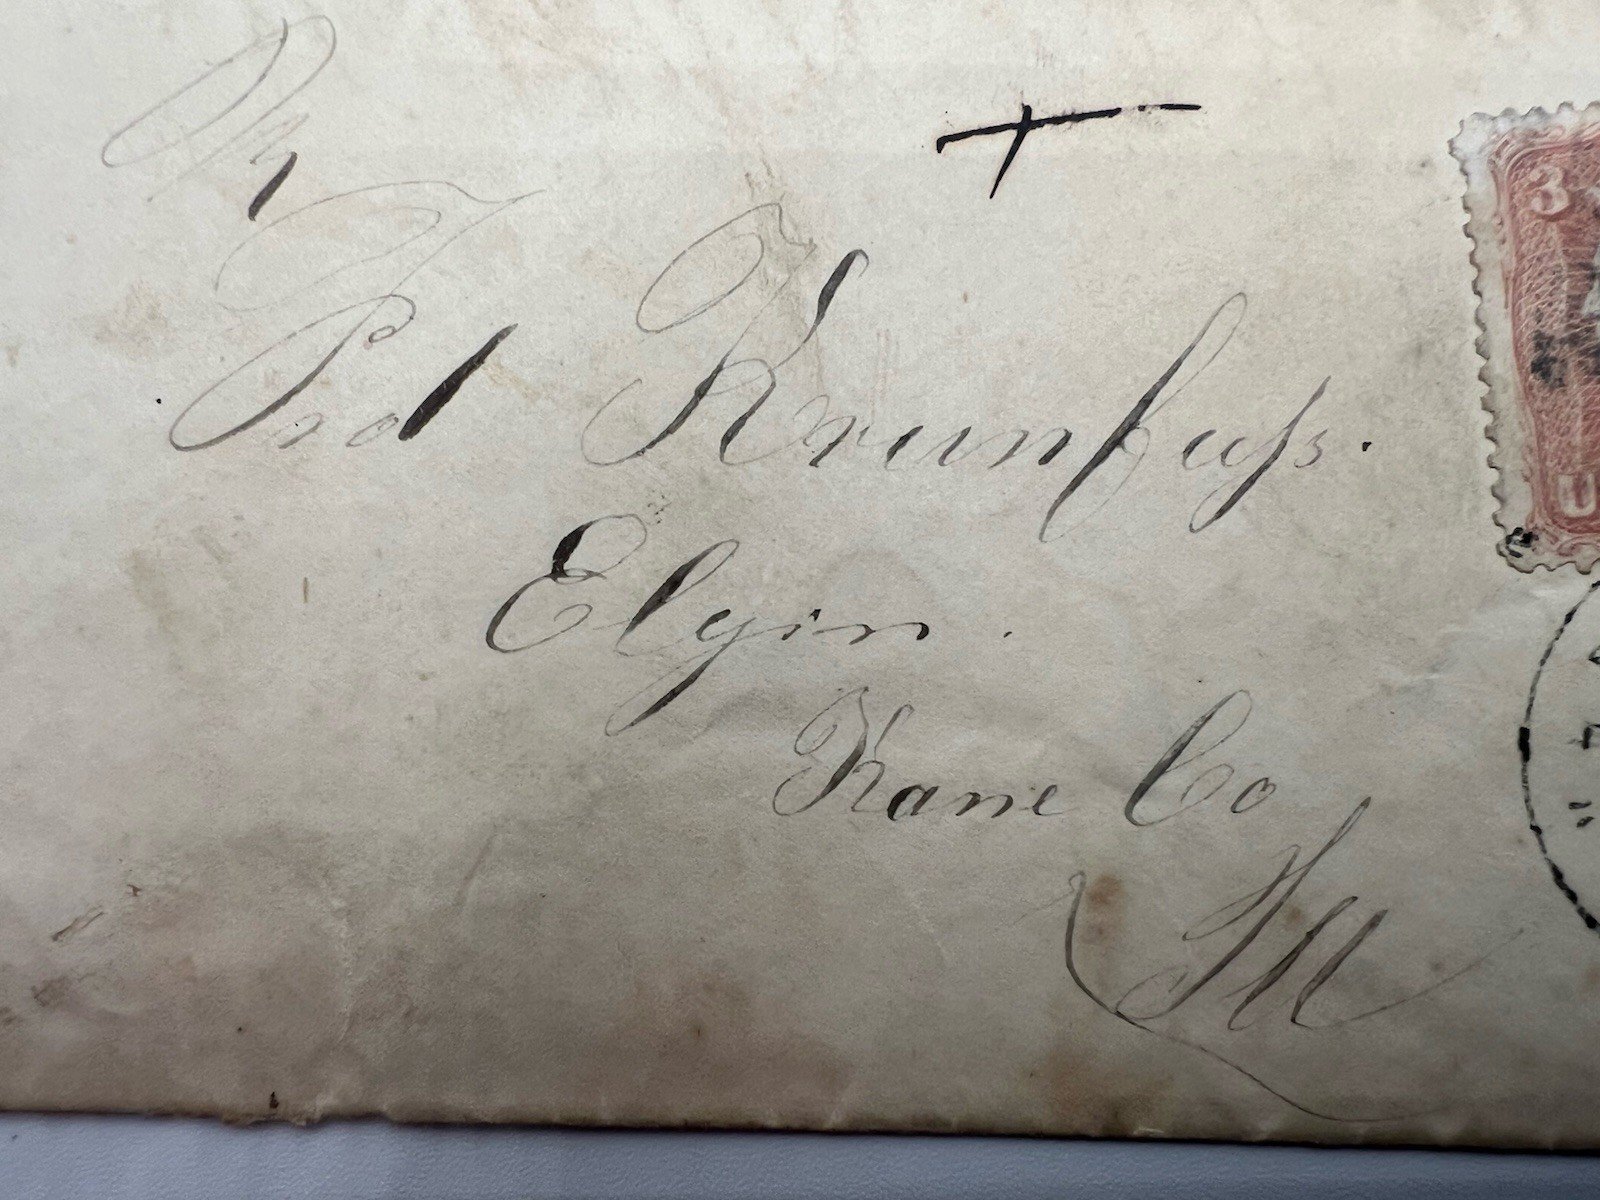 Mr
Fred Krumfuss.
Elgin.
Kane Co
Ill
3
U